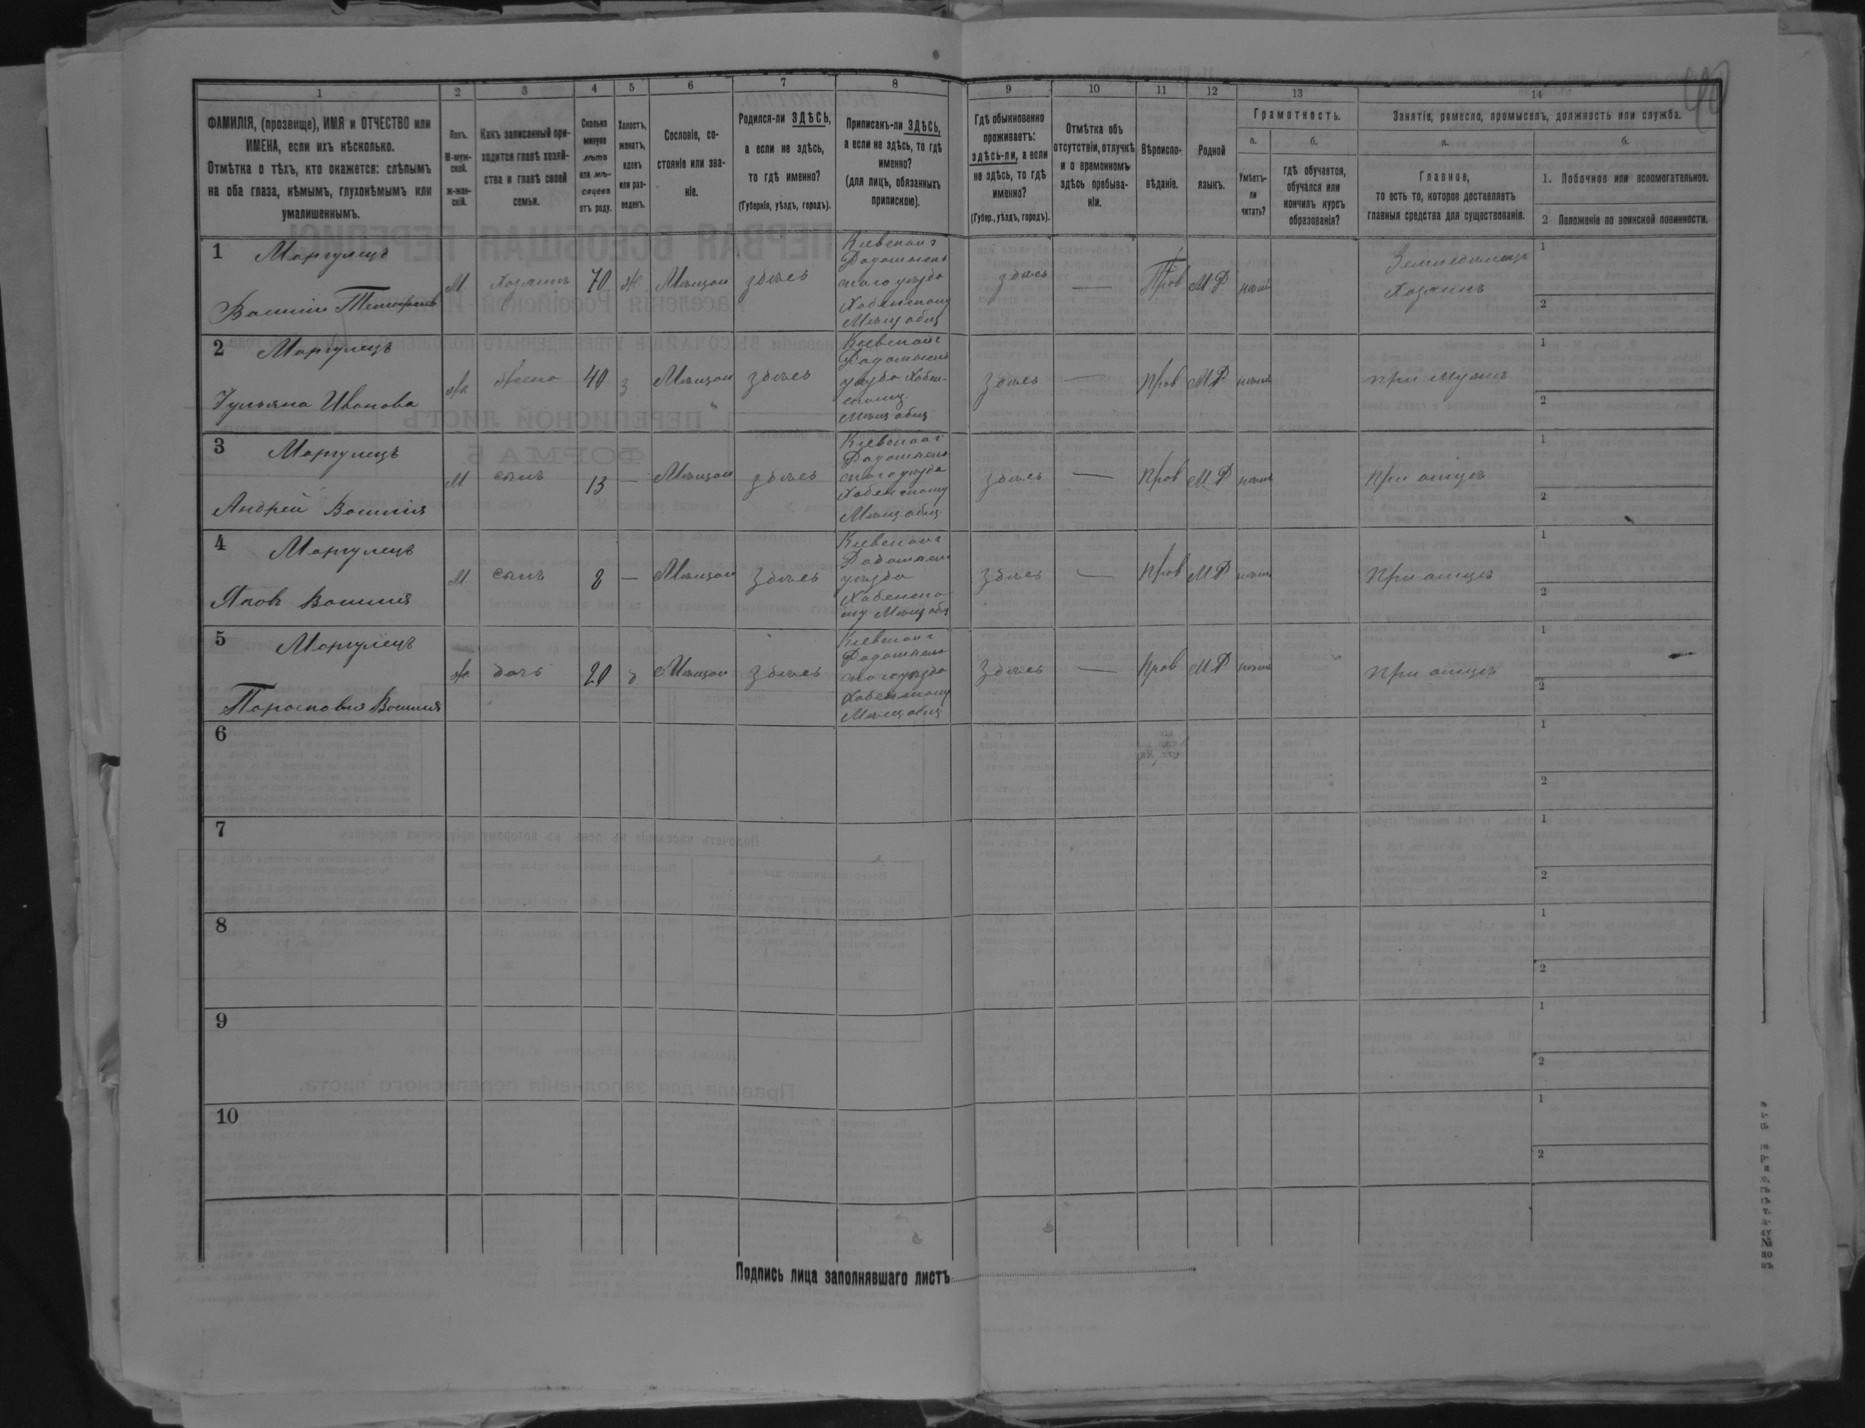 1
2
3
4
5
6
7
8
9
10
11
12
13
14
ФАМИЛІЯ, (прозвище), ИМЯ и ОТЧЕСТВО или
ИМЕНА, если ихъ нѣсколько.
Отмѣтка о тѣхъ, кто окажется: слѣпымъ
на оба глаза, нѣмымъ, глухонѣмымъ или
умалишеннымъ.
Полъ.
М-муж-
ской.
Ж-жен-
скій.
Какъ записанный при-
ходится главѣ хозяй-
ства и главѣ своей
семьи.
Сколько
минуло
лѣтъ
или мѣ-
сяцевъ
отъ роду.
Холостъ,
женатъ,
вдовъ
или раз-
веденъ.
Сословіе, со-
стояніе или зва-
ніе.
Родился-ли ЗДѢСЬ,
а если не здѣсь,
то гдѣ именно?
(Губернія, уѣздъ, городъ).
Приписанъ-ли ЗДѢСЬ,
а если не здѣсь, то гдѣ
именно?
(для лицъ, обязанныхъ
припискою).
Гдѣ обыкновенно
проживаетъ:
здѣсь-ли, а если
не здѣсь, то гдѣ
именно?
(Губер., уѣздъ, городъ).
Отмѣтка объ
отсутствіи, отлучкѣ
и о временномъ
здѣсь пребыва-
ніи.
Вѣроиспо-
вѣданіе.
Родной
языкъ.
Грамотность.
а.
Умѣетъ-
ли
читать?
б.
гдѣ обучается,
обучался или
кончилъ курсъ
образованія?
Занятіе, ремесло, промыселъ, должность или служба.
а.
Главное,
то есть то, которое доставляетъ
главныя средства для существованія.
б.
1. Побочное или вспомогательное.
2 Положеніе по воинской повинности.
1 Маргулецъ
Василій
М Хозяинъ 70 Ж Мѣщан здѣсь
Кіевской г
Радомысль
скаго уѣзда
Хабенскому
Мѣщ общ
здѣсь — Прав М Р
Земледѣлецъ
Хозяинъ
1
2
2 Маргулецъ
Ульяна Иванова
ж жена 40 з Мѣщан здѣсь
Кіевской г
уѣзда Хабен-
Мѣщ общ
здѣсь — прав М Р
при мужѣ
1
2
3 Маргулецъ
Андрей Василія
М сынъ 13 — Мѣщан здѣсь
Кіевской г
Радомысль
скаго уѣзда
Хабенскому
Мѣщ общ
здѣсь — прав М Р
при отцѣ
1
2
4 Маргулецъ
Яковъ Василія
М сынъ 8 — Мѣщан здѣсь
Кіевской г
уѣзда
Хабенско-
му Мѣщ общ
здѣсь — прав М Р
при отцѣ
1
2
5 Маргулецъ
Парасковія Василія
ж дочь 20 д Мѣщан здѣсь
Кіевской г
Радомысль
скаго уѣзда
Хабенскому
Мѣщ общ
здѣсь — прав М Р
при отцѣ
1
2
6
1
2
7
1
2
8
1
2
9
1
2
10
1
2
Подпись лица заполнявшаго листъ